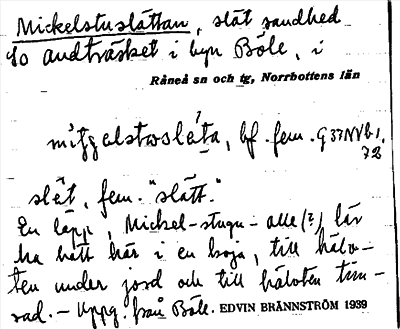 Mickelstuslåttan, slät sandhed
SO Andträsket i byn Böle, i
Råneå sn och tg, Norrbottens län
bf. fem.
slåt, fem. "slätt."
En lapp, Mickel-stugu-alle(?), lär
ha haft här i en koja, till hälv-
ten under jord och till hälvten tim-
rad. - Uppg. från Böle. EDVIN BRÄNNSTRÖM 1939